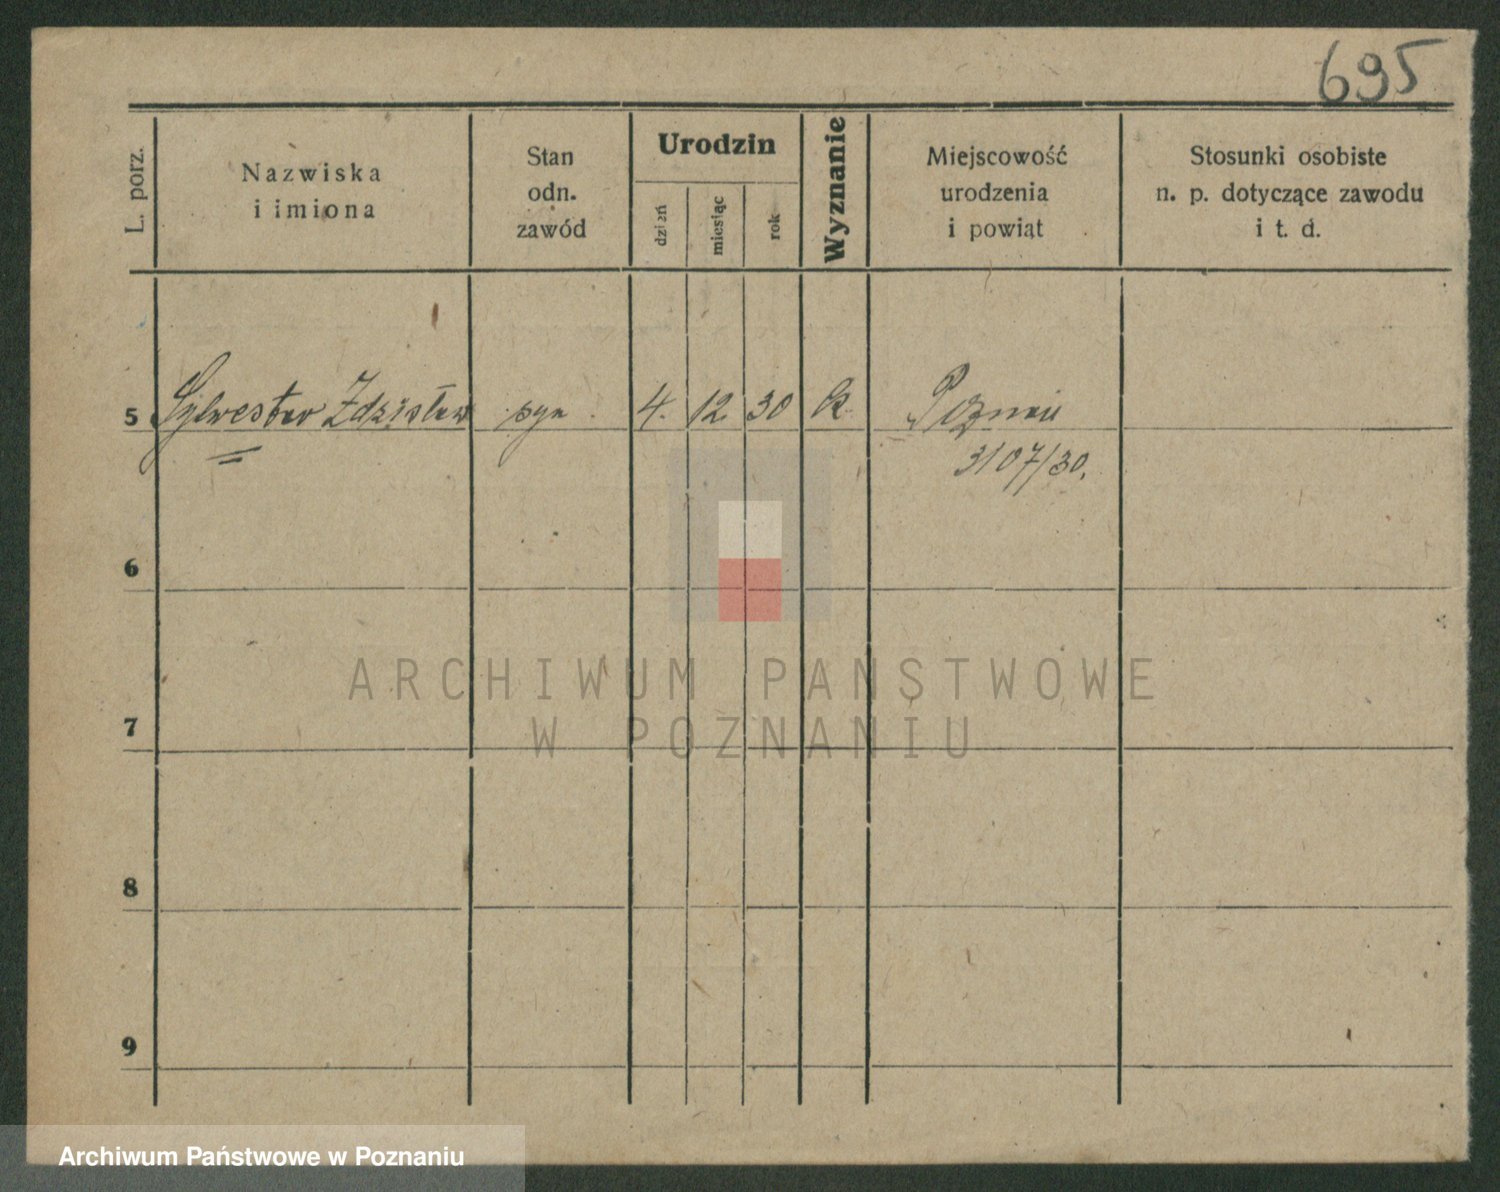 695
L. porz.
Nazwiska
i imiona
Stan
odn.
zawód
Urodzin
dzień
miesiąc
rok
Wyznanie
Miejscowość
urodzenia
i powiat
Stosunki osobiste
n. p. dotyczące zawodu
i t. d.
5 Sylwester Zdzisław syn 4. 12. 30 k. Poznań
3107/30.
6
7
8
9
ARCHIWUM PAŃSTWOWE
W POZNANIU
Archiwum Państwowe w Poznaniu